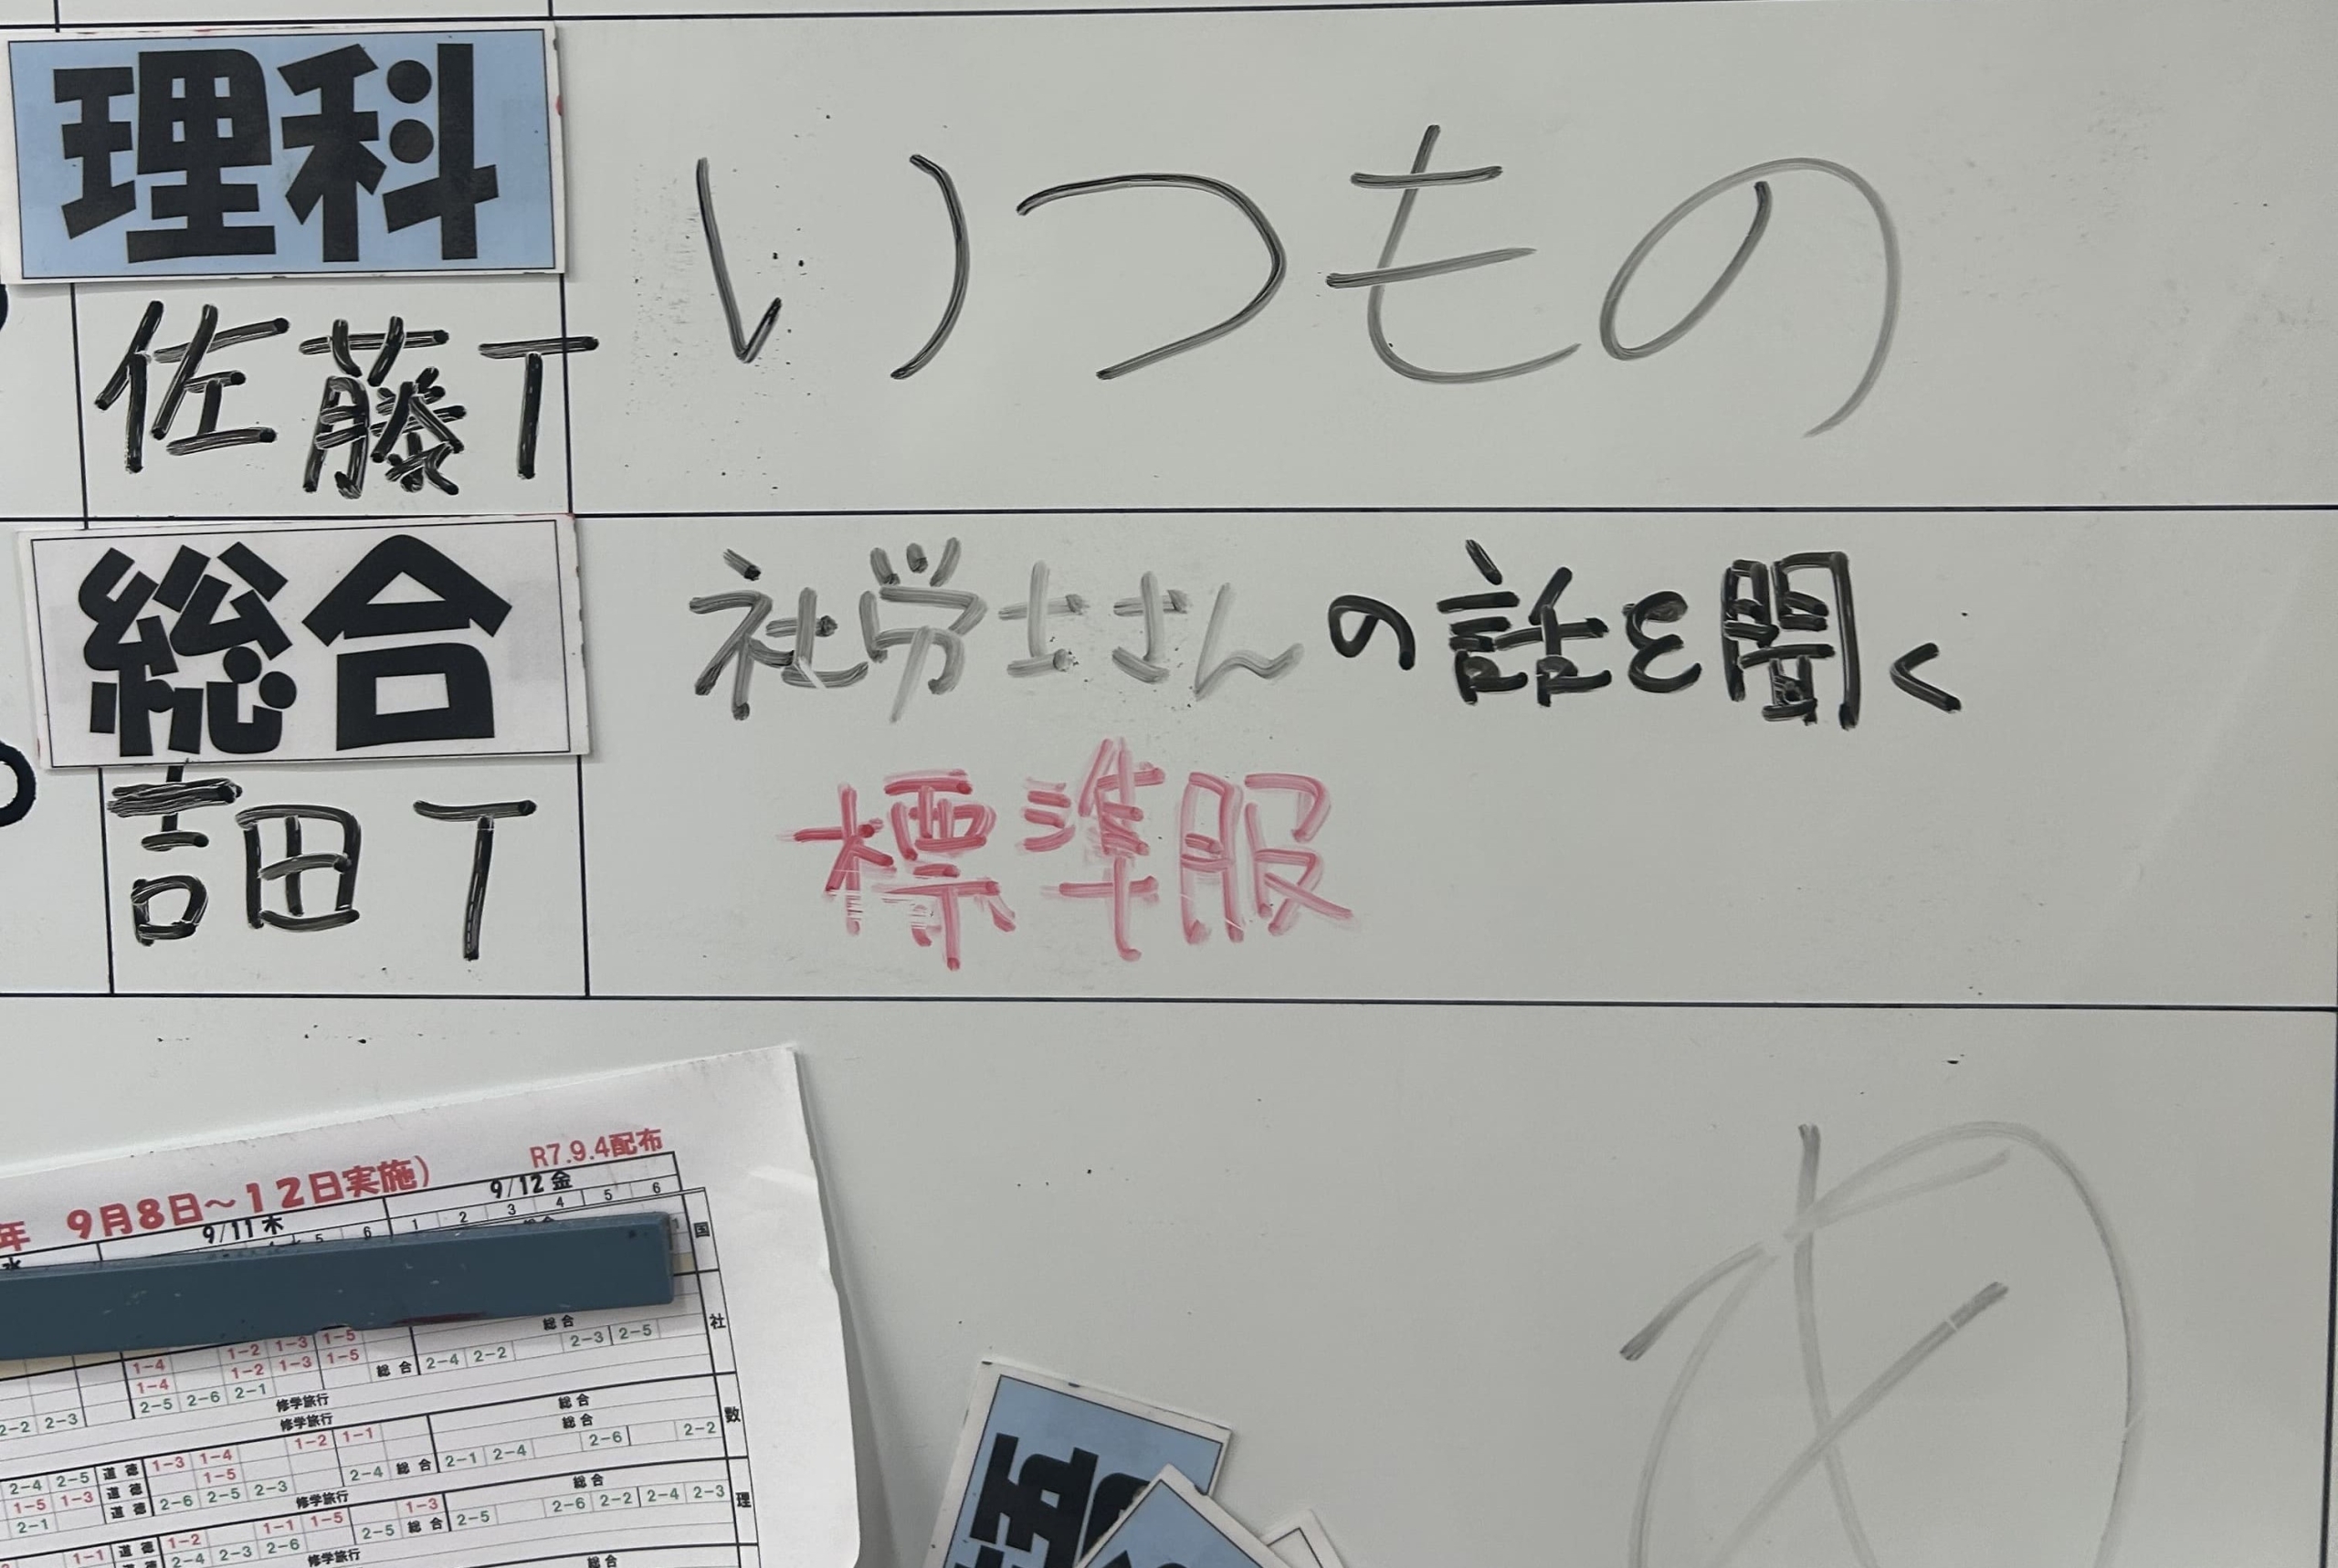 理科
いつもの
佐藤T
総合
社労士さんの話を聞く
吉田T
標準服
あ
R7.9.4配布
年 9月8日～12日実施)
9/11木
9/12金
5 6 1 2 3 4 5 6
国
水
総合
社
1-2 1-3 1-5
1-4 1-2 1-3 1-5 総合 2-4 2-2 2-3 2-5
1-4
2-5 2-6 2-1 修学旅行
2-2 2-3 修学旅行 総合
数
1-2 1-1 総合
2-4 2-5 道徳 1-3 1-4 2-4 総合 2-1 2-4 2-6 2-2
1-5 1-3 道徳 1-5
2-1 道徳 2-6 2-5 2-3 修学旅行 総合
理
1-3 2-6 2-2 2-4 2-3
1-1 道徳 1-2 1-1 1-5 2-5 総合 2-5
2-4 2-3 2-6 修学旅行 総合